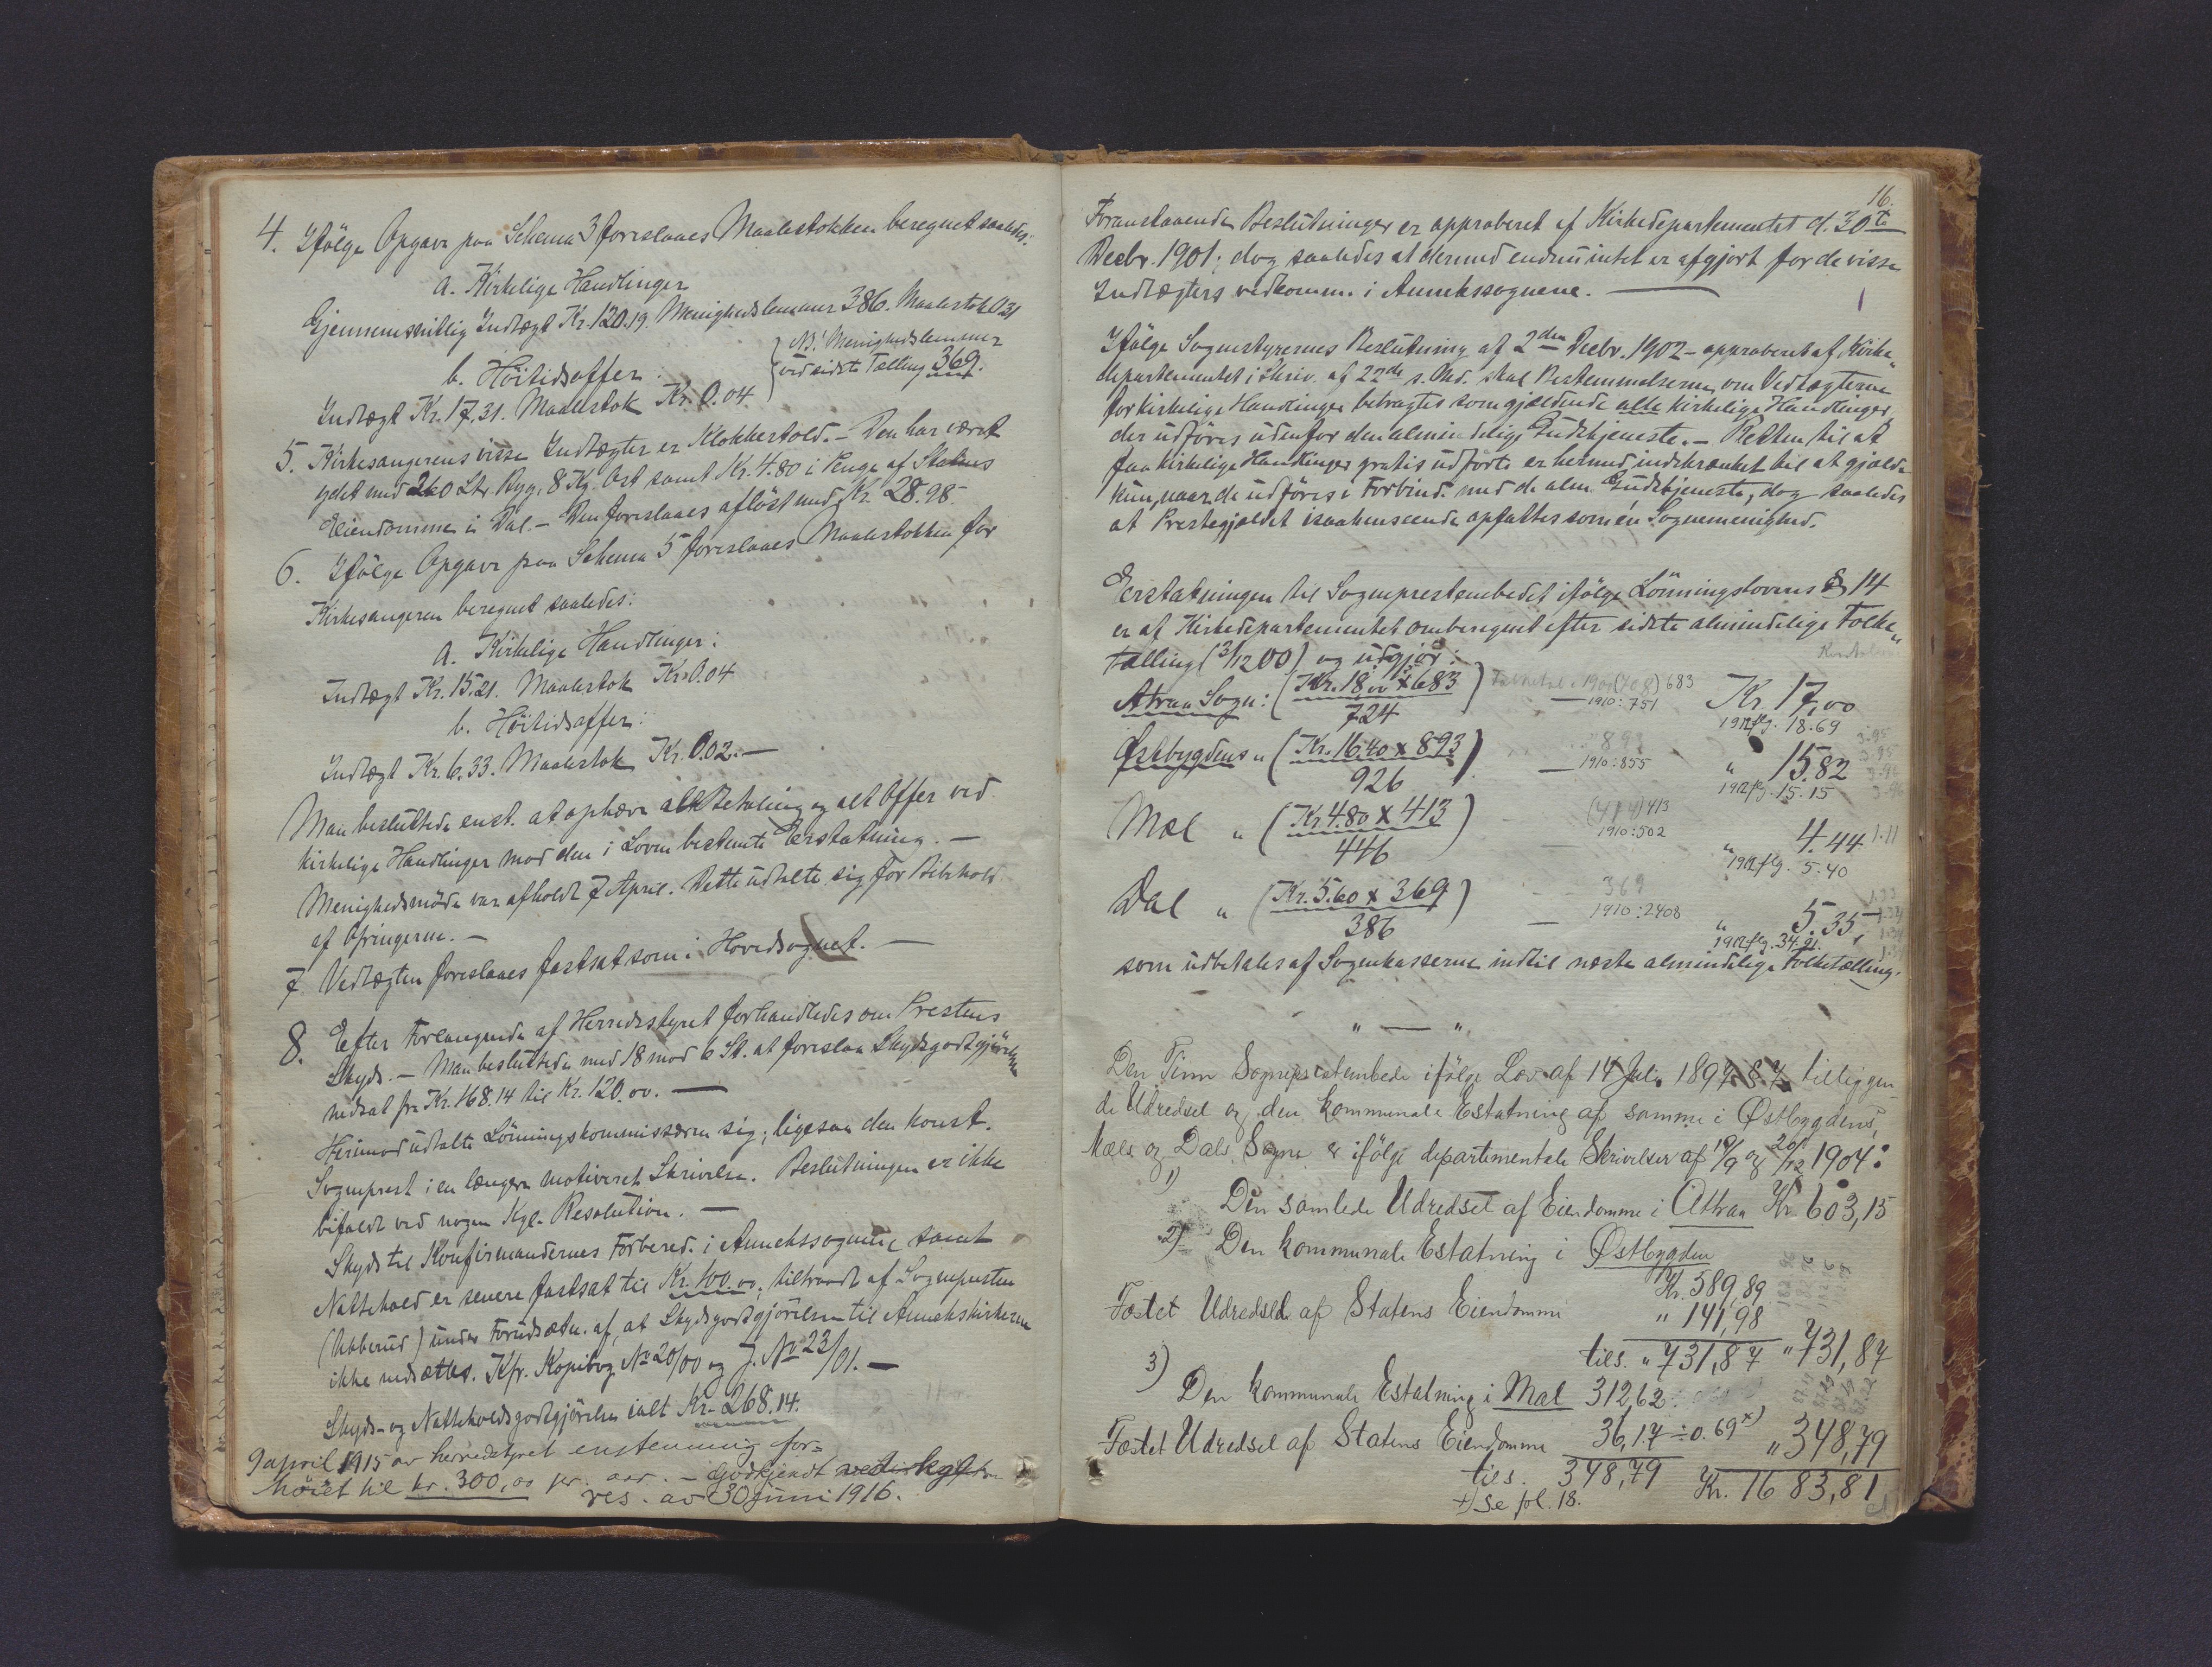 4. Ifölge Opgave paa Schema 3 foreslaaes Maalestokken beregnet saaledes:
a. Kirkelige Handlinger
Gjennemsnitlig Indtægt Kr. 120.19. Menighedslemmer 386. Maalestok 0.31
b. Höitidsoffer:
NB! Menighedslemmer
ved sidste Tælling 369.
Indtægt Kr. 17.31. Maalestok Kr. 0.04
5. Kirkesangerens visse Indtægter er Klokkertold. – Den har været
ydet med 260 Ltr. Byg, 8 Kg. Ost samt Kr. 4.80 i Penge af Statens
Eiendomme i Dal. – Den foreslaaes aflöst med Kr. 28.98
6. Ifölge Opgave paa Schema 5 foreslaaes Maalestokken for
Kirkesangeren beregnet saaledes:
a. Kirkelige Handlinger:
Indtægt Kr. 15.21. Maalestok Kr. 0.04
b. Höitidsoffer:
Indtægt Kr. 6.33. Maalestok Kr. 0.02. –
Man besluttede enst. at ophæve al Betaling og alt Offer ved
kirkelige Handlinger mod den i Loven bestemte Erstatning. –
Menighedsmöde var afholdt 7 April. Dette udtalte sig for Bibehold
af Ofringerne. –
7 Vedtægten foreslaaes fastsat som i Hovedsognet. –
8. Efter Forlangende af Herredsstyret forhandledes om Prestens
Skyds. – Man besluttede med 18 mod 6 St. at foreslaa Skydsgodtgjörelsen
nedsat fra Kr. 168.14 til Kr. 120.00. –
Herimod udtalte Lönningskommissæren sig; ligesaa den konst.
Sogneprest i en længere motiveret Skrivelse. Beslutningen er ikke
bifaldt ved nogen Kgl. Resolution. –
Skyds til Konfirmandernes Forbered. i Annekssognene samt
Nattehold er senere fastsat til Kr. 100.00, tiltraadt af Sognepresten
(Ubberud) under Forudsætn. af, at Skydsgodtgjörelsen til Annekskirkerne
ikke nedsættes. Kfr. Kopibog No 20/00 og J. No 23/01. –
Skyds- og Natteholdsgodtgjörelse ialt Kr. 268.14.
9 april 1915 av herredstyret enstemmig for=
höiet til kr. 300,00 pr. aar. – Godkjendt ved kgl.
res. av 30 juni 1916.
16.
Foranstaaende Beslutninger er approberet af Kirkedepartementet d. 30te
Decbr. 1901; dog saaledes at dermed endnu intet er afgjort for de visse
Indtægters vedkomm. i Annekssognene.
Ifölge Sognestyrernes Beslutning af 2den Decbr. 1902 – approberet af Kirke-
departementet i Skriv. af 22nde s. Md. skal Bestemmelserne om Vedtægterne
for kirkelige Handlinger betragtes som gjældende alle kirkelige Handlinger,
der udföres udenfor den almindelige Gudstjeneste. – Retten til at
faa kirkelige Handlinger gratis udförte er hermed indskrænket til at gjælde
kun, naar de udföres i Forbind. med de alm. Gudstjeneste, dog saaledes
at Prestegjældet i saa henseende opfattes som én Sognemenighed.
Erstatningen til Sogneprestembedet ifölge Lönningslovens § 14
er af Kirkedepartementet omberegnet efter sidste almindelige Folke-
tælling (3/12 00) og udgjör:
Atraa Sogn: (Kr. 18.00 x 683) Folketal i 1900 (708) 683 Kr. 17,00
724 1910: 751 1912 flg. 18.69
Östbygdens " (Kr. 16.40 x 893) 893 " 15.82
926 1910: 855 1912 flg. 15.15
Mæl " (Kr. 4.80 x 413) (414) 413 " 4.44 1.11
446 1910: 502 1912 flg. 5.40
Dal " (Kr. 5.60 x 369) 369 " 5.35
386 1910: 2408 1912 flg. 34.91.
som udbetales af Sognekasserne indtil næste almindelige Folketælling.
" — "
Den Tinn Sogneprestembede ifölge Lov af 14 Juli 1897 § 7 tilliggen
de Udredsel og den kommunale Estatning af samme i Østbygdens,
Mæls og Dals Sogne er ifölge departementale Skrivelser af 19/9 og 20/12 1904:
1)
Den samlede Udredsel af Eiendomme i Attraa Kr. 603,15
2) Den kommunale Estatning i Østbygden
Kr. 589,89
Fæstet Udredsel af Statens Eiendomme " 141,98
tils. " 731,87 " 731,87
3)
Den kommunale Estatning i Mæl 312,62
Fæstet Udredsel af Statens Eiendomme 36,17 ÷ 0.69 x) " 348,79
tils. 348,79 Kr. 1683,81
x) Se fol. 18.